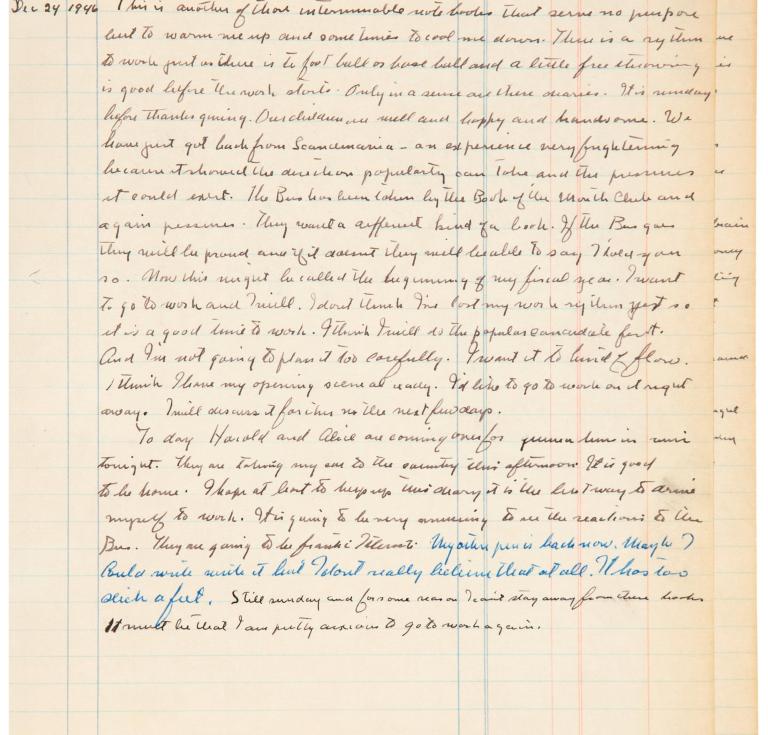 Dec 24 1946 This is another of those interminable note books that serve no purpose
but to warm me up and sometimes to cool me down. There is a rythm
to work just as there is to foot ball or base ball and a little free throwing
is good before the work starts. Only in a sense are these diaries. It is sunday
before thanksgiving. Our children are well and happy and handsome. We
have just got back from Scandinavia - an experience very frightening
because it showed the direction popularity can take and the pressures
it could exert. The Bus has been taken by the Book of the Month Club and
again pressures. They want a different kind of a book. If the Bus goes
they will be proud and if it doesnt they will be able to say I told you
so. Now this might be called the beginning of my fiscal year. I want
to go to work and I will. I dont think I've lost my work rythm yet so
it is a good time to work. I think I will do the popular candidate first.
And I'm not going to plan it too carefully. I want it to kind of flow.
I think I have my opening scene al ready. I'd like to go to work on it right
away. I will discuss it further in the next few days.
To day Harold and Alice are coming over for
tonight. They are taking my car to the country this afternoon. It is good
to be home. I hope at least to keep up this diary it is the best way to drive
myself to work. It is going to be very amusing to see the reactions to the
Bus. They are going to be frantic I suspect. My other pen is back now. Maybe I
could write with it but I dont really believe that at all. It has too
slick a feel. Still sunday and for some reason I cant stay away from these books
It must be that I am pretty anxious to go to work again.